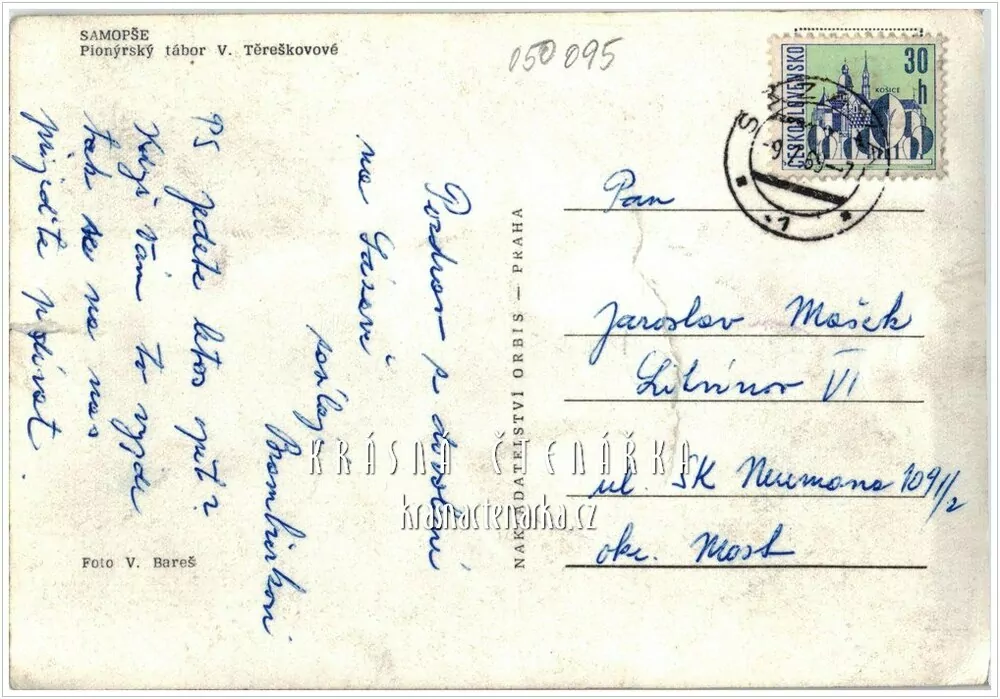 SAMOPŠE
Pionýrský tábor V. Těreškovové
050095
ČESKOSLOVENSKO
30
h
KOŠICE
1
Pozdrav z dovolené
na Sázavě
posílají
PS jedete letos opět?
Když Vám to vyjde
tak se na nás
přijeďte podívat.
Foto V. Bareš
NAKLADATELSTVÍ ORBIS — PRAHA
Pan
Jaroslav Mašek
Litvínov VI
ul. SK Neumana 1091/2
okr. Most
KRÁSNÁ ČTENÁŘKA
krasnactenarka.cz